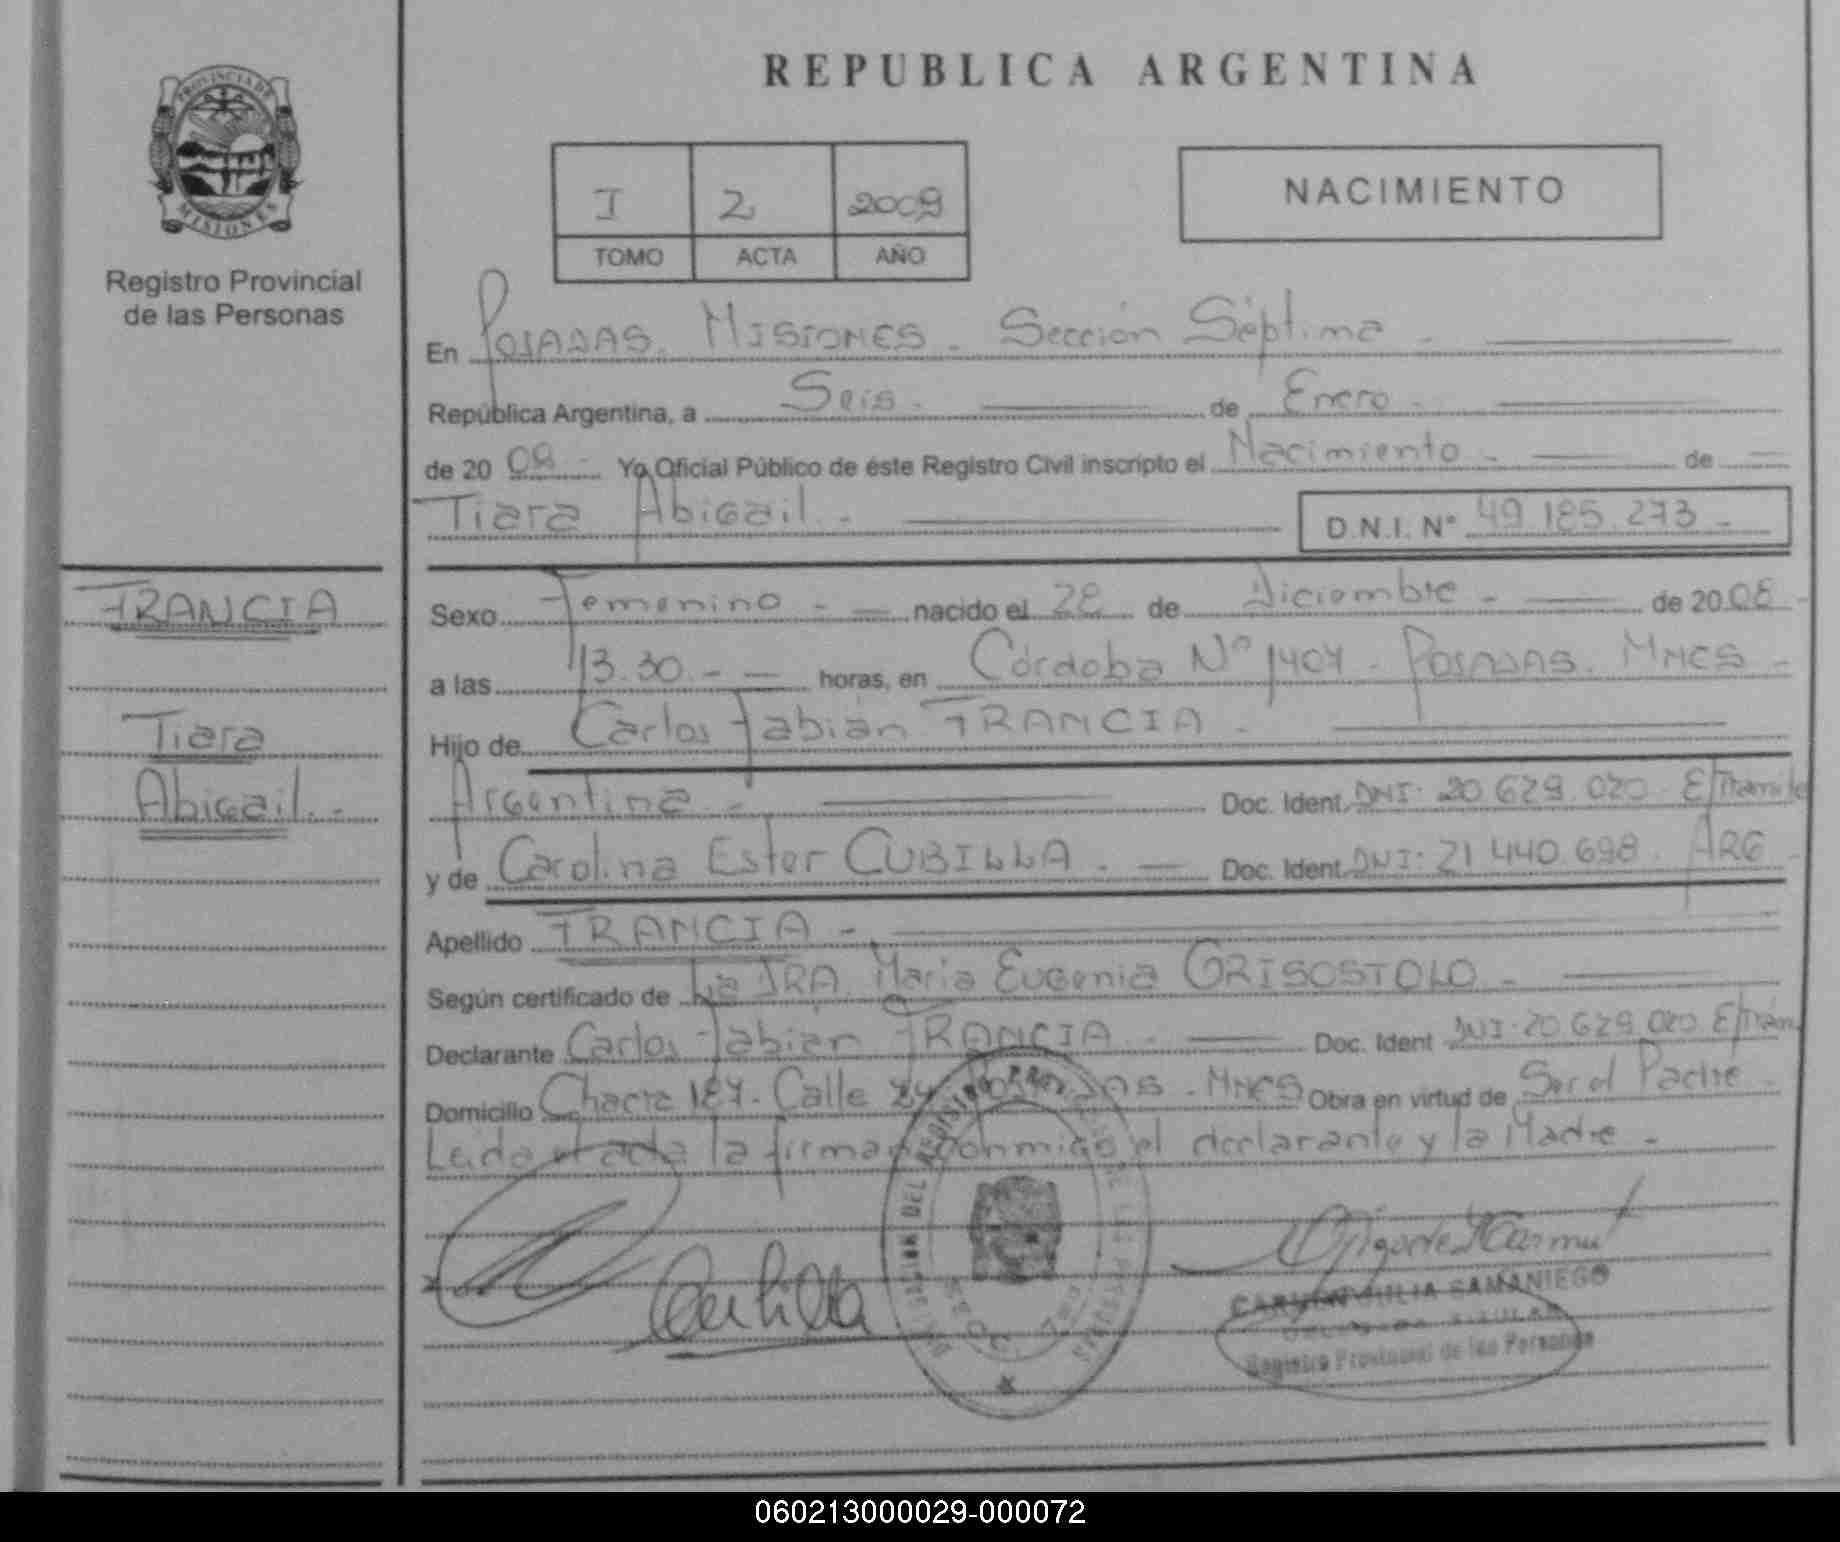 REPUBLICA ARGENTINA
PROVINCIA DE
MISIONES
Registro Provincial
de las Personas
I 2 2009
TOMO ACTA AÑO
NACIMIENTO
En POSADAS. MISIONES. Sección Séptima
República Argentina, a Seis. de Enero.
de 20 09 - Yo Oficial Público de éste Registro Civil inscripto el Nacimiento - de
Tiara Abigail. - D.N.I. N° 49.185.273 -
FRANCIA
Tiara
Abigail. -
Sexo Femenino - nacido el 28 de Diciembre - de 20 08 -
a las 13.30. - horas, en Córdoba N° 1407 - POSADAS. MNES -
Hijo de Carlos Fabián FRANCIA -
Argentina - Doc. Ident. DNI: 20.629.020 E/Tramite
y de Carolina Ester CUBILLA. - Doc. Ident. DNI: 21.440.698. ARG -
Apellido FRANCIA -
Según certificado de La DRA. María Eugenia GRISOSTOLO -
Declarante Carlos Fabián FRANCIA - Doc. Ident DNI: 20.629.020 E/Trám
Domicilio Chacra 187. Calle - MNES Obra en virtud de Ser el Padre -
Leida el acta la firman conmigo el declarante y la Madre -
Cubilla
CARMEN JULIA SAMANIEGO
Registro Provincial de las Personas
060213000029-000072